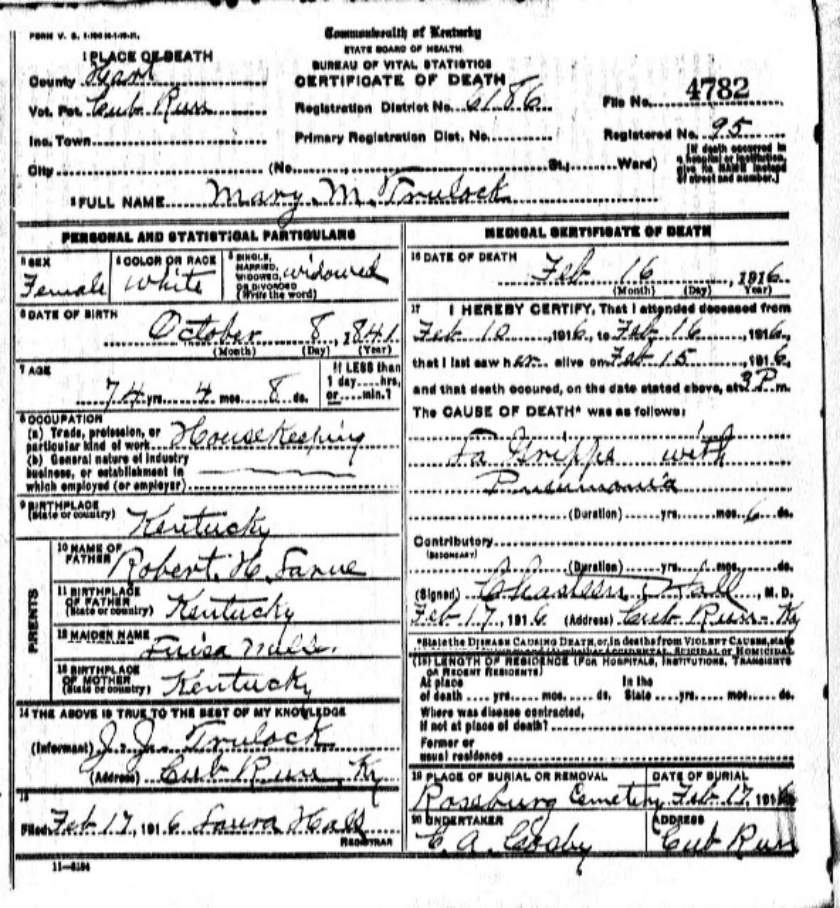 FORM V. S. 1-
Commonwealth of Kentucky
STATE BOARD OF HEALTH
BUREAU OF VITAL STATISTICS
CERTIFICATE OF DEATH
1 PLACE OF DEATH
County Hart
Vot. Pct. Cub Run
Registration District No. 6186
File No. 4782
Inc. Town
Primary Registration Dist. No.
Registered No. 95
City (No. St.; Ward)
[If death occurred in
a hospital or institution,
give its NAME instead
of street and number.]
2 FULL NAME Mary M. Trulock
PERSONAL AND STATISTICAL PARTICULARS
3 SEX
Female
4 COLOR OR RACE
White
5 SINGLE,
MARRIED,
WIDOWED,
OR DIVORCED
(Write the word)
widowed
6 DATE OF BIRTH
October 8, 1841
(Month) (Day) (Year)
7 AGE
74 yrs. 4 mos. 8 ds.
If LESS than
1 day....hrs,
or....min.?
8 OCCUPATION
(a) Trade, profession, or
particular kind of work House Keeping
(b) General nature of industry
business, or establishment in
which employed (or employer)
9 BIRTHPLACE
(State or country) Kentucky
PARENTS
10 NAME OF
FATHER Robert. H.
11 BIRTHPLACE
OF FATHER
(State or country) Kentucky
12 MAIDEN NAME
13 BIRTHPLACE
OF MOTHER
(State or country) Kentucky
14 THE ABOVE IS TRUE TO THE BEST OF MY KNOWLEDGE
(Informant) J. J. Trulock
(Address) Cub Run, Ky
15
Filed Feb 17, 1916 Laura Hall
REGISTRAR
11-5184
MEDICAL CERTIFICATE OF DEATH
16 DATE OF DEATH
Feb 16, 1916
(Month) (Day) (Year)
17 I HEREBY CERTIFY, That I attended deceased from
Feb 10, 1916, to Feb 16, 1916,
that I last saw her alive on Feb 15, 1916,
and that death occured, on the date stated above, at 3 P m.
The CAUSE OF DEATH* was as follows:
La Grippe with
Pneumonia
(Duration) yrs. mos. 6 ds.
Contributory
(SECONDARY)
(Duration) yrs. mos. ds.
(Signed) Chasteen Hall, M. D.
Feb 17, 1916 (Address) Cub Run - Ky
*State the DISEASE CAUSING DEATH, or, in deaths from VIOLENT CAUSES, state
ACCIDENTAL, SUICIDAL or HOMICIDAL
(18) LENGTH OF RESIDENCE (FOR HOSPITALS, INSTITUTIONS, TRANSIENTS
OR RECENT RESIDENTS)
At place
of death .... yrs. .... mos. .... ds.
In the
State .... yrs. .... mos. .... ds.
Where was disease contracted,
if not at place of death?
Former or
usual residence
19 PLACE OF BURIAL OR REMOVAL
Roseburg Cemetery
DATE OF BURIAL
Feb 17, 1916
20 UNDERTAKER
C. A. Cosby
ADDRESS
Cub Run